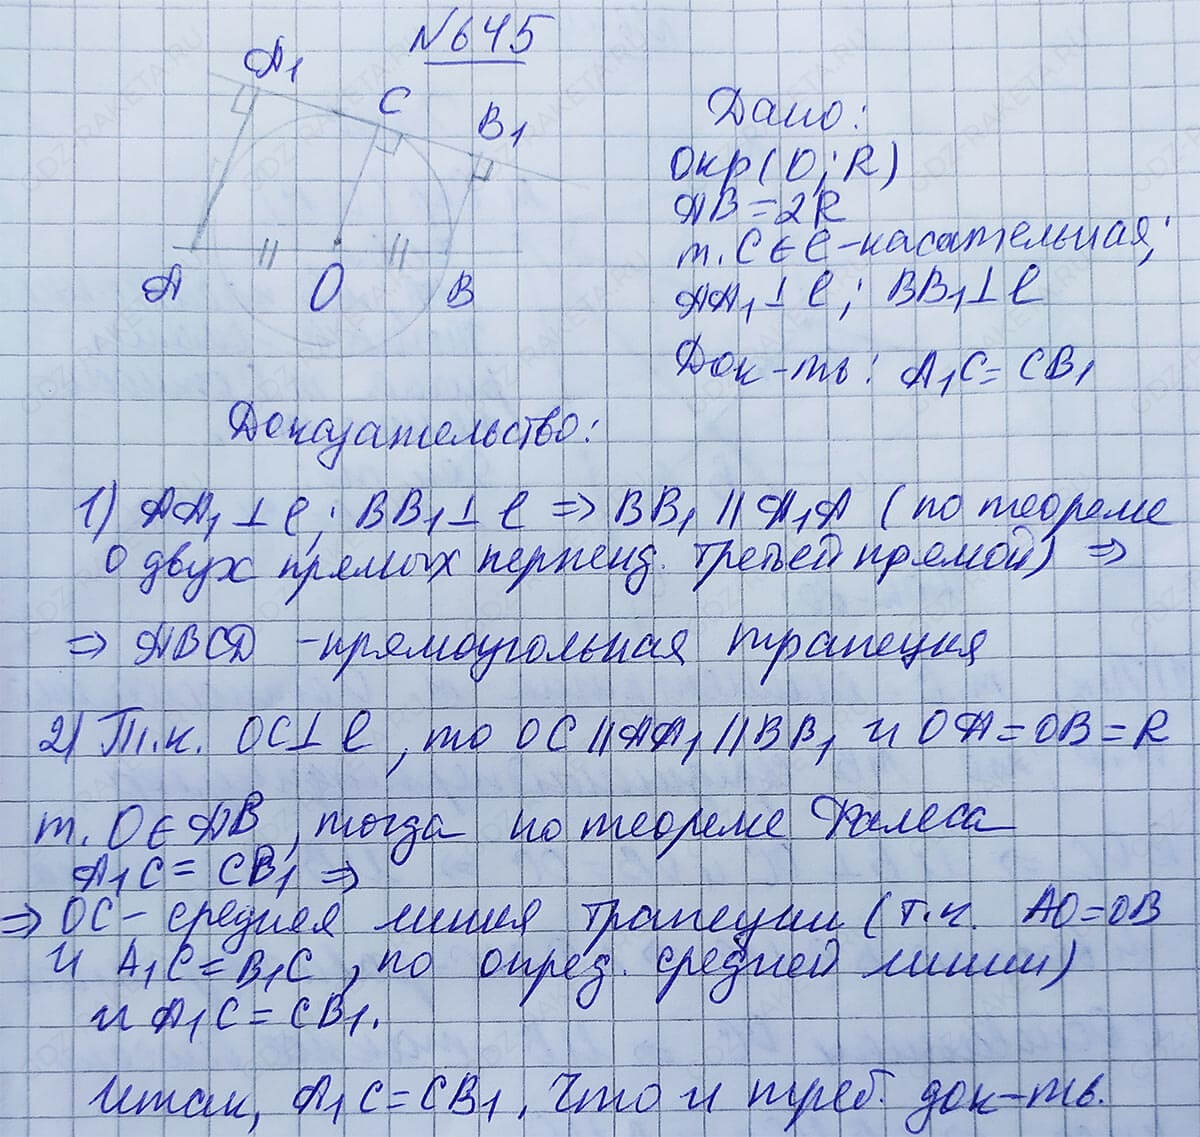 №645
A₁
C
B₁
A
O
B
Дано:
Окр(O; R)
AB=2R
т. C ∈ ℓ - касательная;
AA₁ ⊥ ℓ; BB₁ ⊥ ℓ
Док-ть: A₁C = CB₁
Доказательство:
1) AA₁ ⊥ ℓ; BB₁ ⊥ ℓ ⇒ BB₁ || A₁A (по теореме
о двух прямых перпенд. третьей прямой) ⇒
⇒ ABCD - прямоугольная трапеция
2) Т.к. OC ⊥ ℓ, то OC || AA₁ || BB₁ и OA = OB = R
т. O ∈ AB, тогда по теореме Фалеса
A₁C = CB₁ ⇒
⇒ OC - средняя линия трапеции (т.к. AO = OB
и A₁C = B₁C, по опред. средней линии)
и A₁C = CB₁.
Итак, A₁C = CB₁. Что и треб. док-ть.